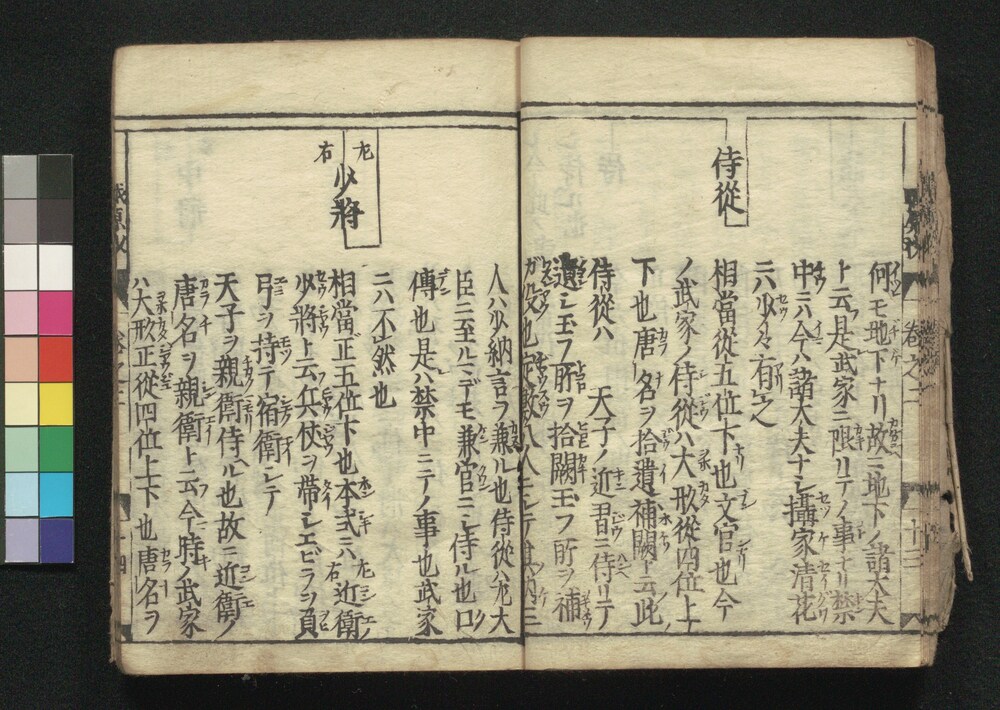 何モ地下ナリ故ニ地下ノ諸大夫
ト云是武家ニ限リテノ事ナリ禁
中ニハ今ハ諸大夫ナシ攝家清花
ニハ少々有之
侍從
相當從五位下也文官也今
ノ武家ノ侍從ハ大形從四位上
下也唐名ヲ拾遺補闕ト云此
侍從ハ天子ノ近習ニ侍リテ
遺シ玉フ所ヲ拾闕玉フ所ヲ補
ガ役也定數八人ニシテ其内三
人ハ少納言ヲ兼ル也侍從ハ左大
臣ニ至ルマデモ兼官ニシ侍ル也口
傳也是ハ禁中ニテノ事也武家
ニハ不然也
左右少將
相當正五位下也本式ニハ左右近衛
少將ト云兵仗ヲ帶シエビラヲ負
弓ヲ持テ宿衛シテ
天子ヲ親衛侍ル也故ニ近衛ノ
唐名ヲ親衛ト云今ノ時ノ武家
ハ大形正從四位上下也唐名ヲ